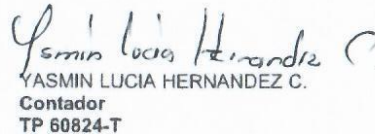 Yasmin Lucia Hernandez C
YASMIN LUCIA HERNANDEZ C.
Contador
TP 60824-T